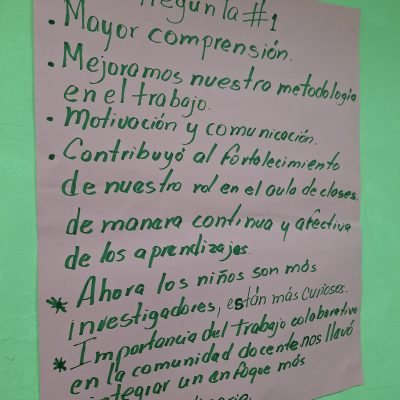 Pregunta #1
. Mayor comprensión.
. Mejoramos nuestra metodología
en el trabajo.
. Motivación y comunicación.
. Contribuyó al fortalecimiento
de nuestro rol en el aula de clases.
de manera continua y afectiva
de los aprendizajes.
* Ahora los niños son más
investigadores, están más curiosos.
* Importancia del trabajo colaborativo
en la comunidad docente nos llevó
integrar un enfoque más